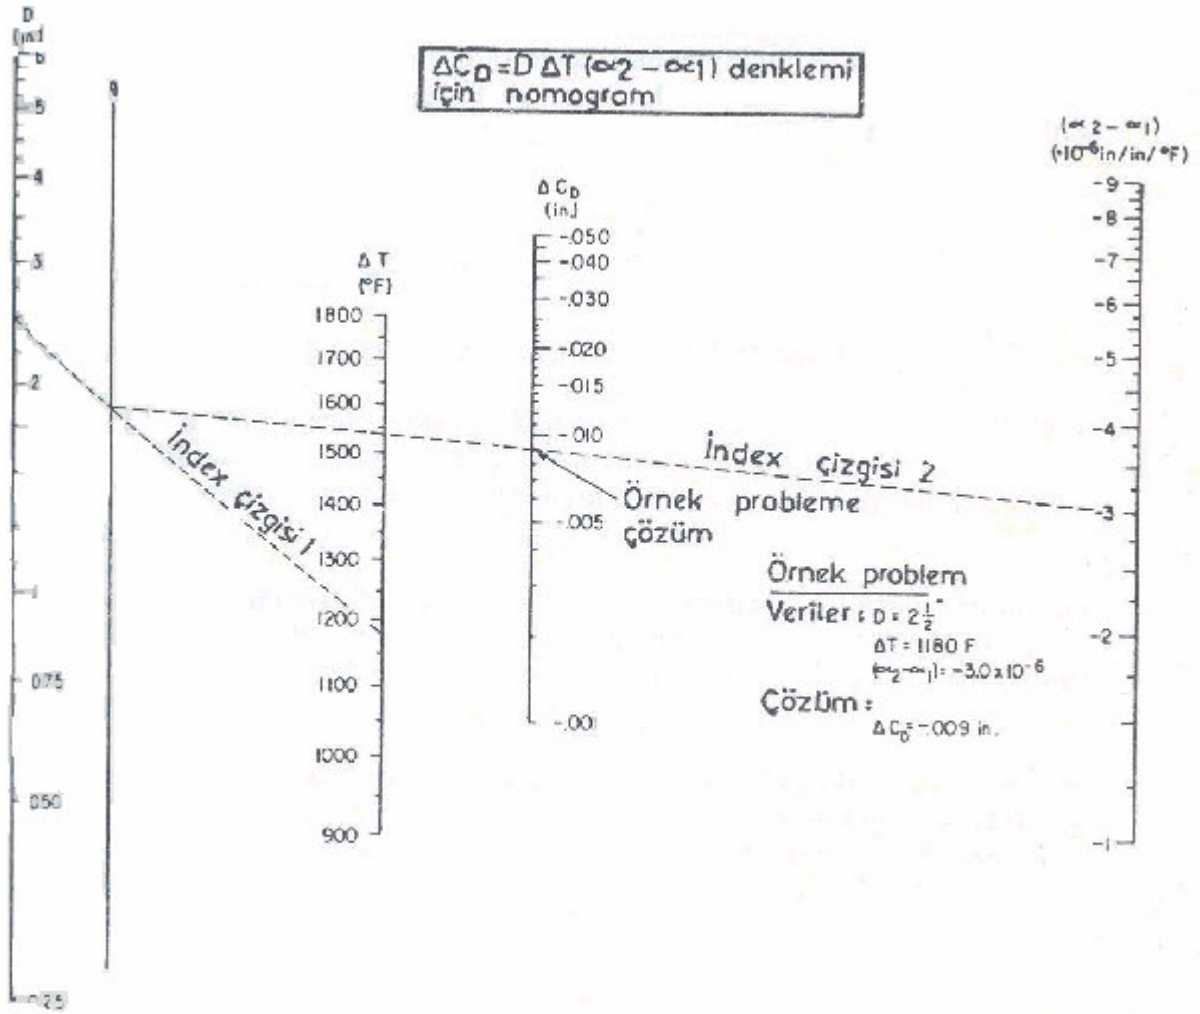 D
(in)
6
5
4
3
2
1
0.75
0.50
0.25
ΔC_D = D ΔT (α2 – α1) denklemi
için nomogram
ΔT
(°F)
1800
1700
1600
1500
1400
1300
1200
1100
1000
900
ΔC_D
(in)
-.050
-.040
-.030
-.020
-.015
-.010
-.005
-.001
(α2 – α1)
(·10⁻⁶in/in/°F)
-9
-8
-7
-6
-5
-4
-3
-2
-1
İndex çizgisi 1
İndex çizgisi 2
Örnek probleme
çözüm
Örnek problem
Veriler: D = 2 1/2"
ΔT = 1180 F
(α2-α1) = -3.0 x 10⁻⁶
Çözüm:
ΔC_D = -.009 in.